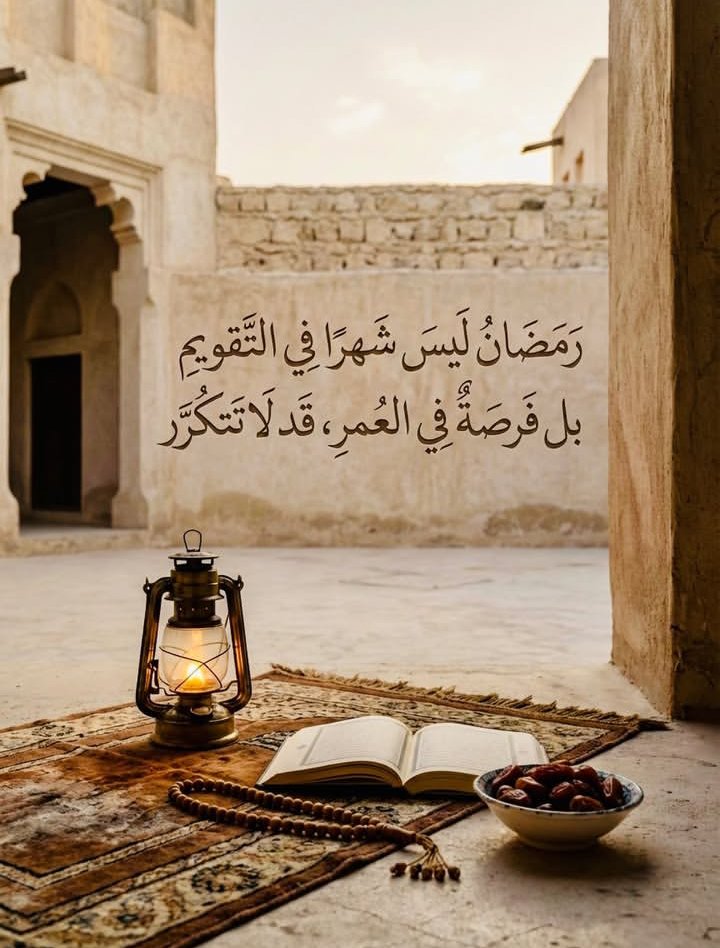 رَمَضَانُ لَيسَ شَهرًا فِي التَّقويمِ
بل فَرصَةٌ فِي العُمرِ، قَد لَا تَتكُرَّر